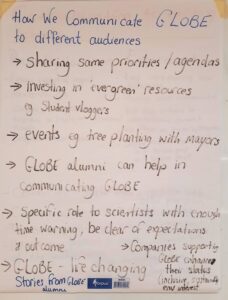 How We Communicate GLOBE
to different audiences
→ Sharing same priorities/agendas
→ Investing in 'evergreen' resources
eg Student vloggers
→ events eg tree planting with Mayors
→ GLOBE alumni can help in
communicating GLOBE
→ Specific role to scientists with enough
time warning, be clear of expectations
& outcome
→ Companies supporting
GLOBE
their status
→ GLOBE - life changing
Stories from GLOBE
alumni